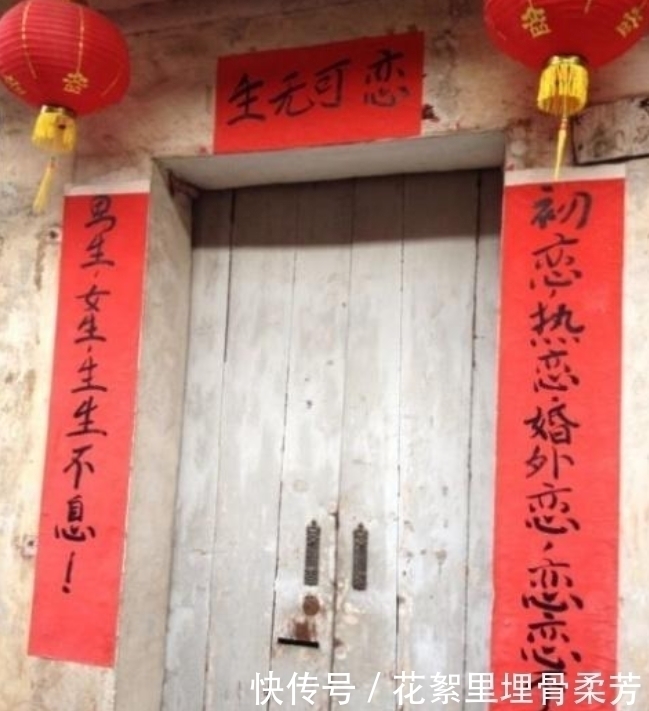 生无可恋
初恋，热恋，婚外恋，恋恋
男生，女生，生生不息！
快传号 / 花絮里埋骨柔芳